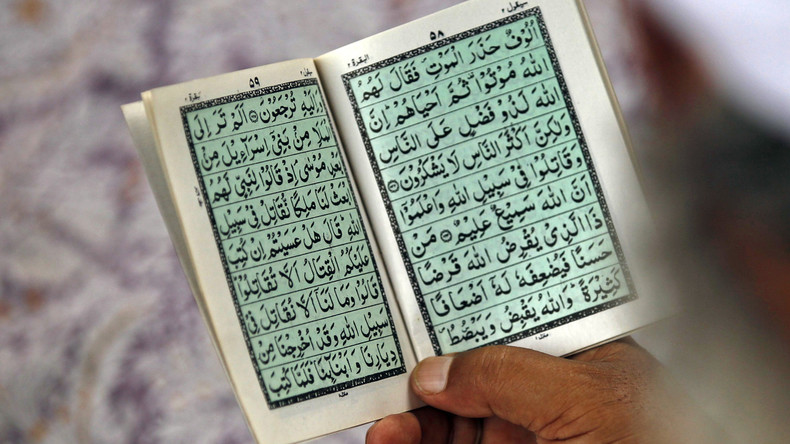 سيقول ٢
٥٨
البقرة ٢
اُلُوْفٌ حَذَرَ الْمَوْتِ فَقَالَ لَهُمُ
اللّٰهُ مُوْتُوْا ثُمَّ اَحْيَاهُمْ اِنَّ
اللّٰهَ لَذُوْ فَضْلٍ عَلَى النَّاسِ
وَلٰكِنَّ اَكْثَرَ النَّاسِ لَا يَشْكُرُوْنَ
وَقَاتِلُوْا فِيْ سَبِيْلِ اللّٰهِ وَاعْلَمُوْۤا
اَنَّ اللّٰهَ سَمِيْعٌ عَلِيْمٌ مَنْ
ذَا الَّذِيْ يُقْرِضُ اللّٰهَ قَرْضًا
حَسَنًا فَيُضٰعِفَهٗ لَهٗۤ اَضْعَافًا
كَثِيْرَةً وَاللّٰهُ يَقْبِضُ وَيَبْصُۜطُ
٥٩
البقرة ٢
وَاِلَيْهِ تُرْجَعُوْنَ اَلَمْ تَرَ اِلَى
الْمَلَاِ مِنْۢ بَنِيْۤ اِسْرَآءِيْلَ مِنْۢ
بَعْدِ مُوْسٰى اِذْ قَالُوْا لِنَبِيٍّ لَّهُمُ
ابْعَثْ لَنَا مَلِكًا نُّقَاتِلْ فِيْ سَبِيْلِ
اللّٰهِ قَالَ هَلْ عَسَيْتُمْ اِنْ كُتِبَ
عَلَيْكُمُ الْقِتَالُ اَلَّا تُقَاتِلُوْا
قَالُوْا وَمَا لَنَاۤ اَلَّا نُقَاتِلَ فِيْ
سَبِيْلِ اللّٰهِ وَقَدْ اُخْرِجْنَا مِنْ
دِيَارِنَا وَاَبْنَآئِنَا فَلَمَّا كُتِبَ